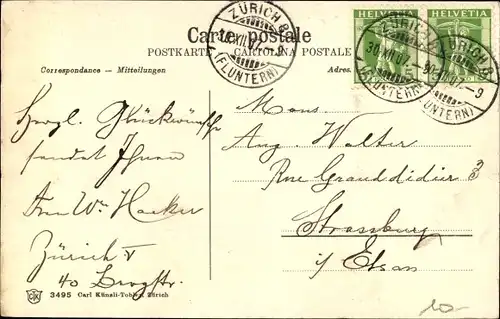 Carte postale
POSTKARTE CARTOLINA POSTALE
Correspondance — Mitteilungen
Adres
ZÜRICH 8
30.XII.07.–9
(FLUNTERN)
HELVETIA
HELVETIA
5
30.XII.07.
(FLUNTERN)
ZÜRICH 8
30.XII.07.–9
(FLUNTERN)
Herzl. Glückwünsche
sendet Ihnen
Hacker
Zürich V
40
Mons.
Aug. Walter
Rue Granddidier 3
Strassburg
i/ Elsass
3495 Carl Künzli-Tobler, Zürich
10-